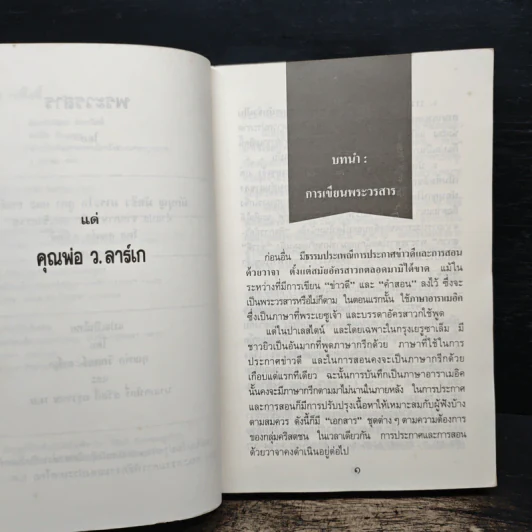 แด่
คุณพ่อ ว.ลาร์เก
บทนำ :
การเขียนพระวรสาร
ก่อนอื่น มีธรรมประเพณีการประกาศข่าวดีและการสอน
ด้วยวาจา ตั้งแต่สมัยอัครสาวกตลอดมามิได้ขาด แม้ใน
ระหว่างที่มีการเขียน "ข่าวดี" และ "คำสอน" ลงไว้ ซึ่งจะ
เป็นพระวรสารหรือไม่ก็ตาม ในตอนแรกนั้น ใช้ภาษาอาราเมอิค
ซึ่งเป็นภาษาที่พระเยซูเจ้า และบรรดาอัครสาวกใช้พูด
แต่ในปาเลสไตน์ และโดยเฉพาะในกรุงเยรูซาเล็ม มี
ชาวยิวเป็นอันมากที่พูดภาษากรีกด้วย ภาษาที่ใช้ในการ
ประกาศข่าวดี และในการสอนคงจะเป็นภาษากรีกด้วย
เกือบแต่แรกทีเดียว ฉะนั้นการบันทึกเป็นภาษาอาราเมอิค
นั้นคงจะมีภาษากรีกตามมาไม่นานในภายหลัง ในการประกาศ
และการสอนก็มีการปรับปรุงเนื้อหาให้เหมาะสมกับผู้ฟังบ้าง
ตามสมควร ดังนี้ก็มี "เอกสาร" ชุดต่าง ๆ ตามความต้องการ
ของกลุ่มคริสตชน ในเวลาเดียวกัน การประกาศและการสอน
ด้วยวาจาคงดำเนินอยู่ต่อไป
๑